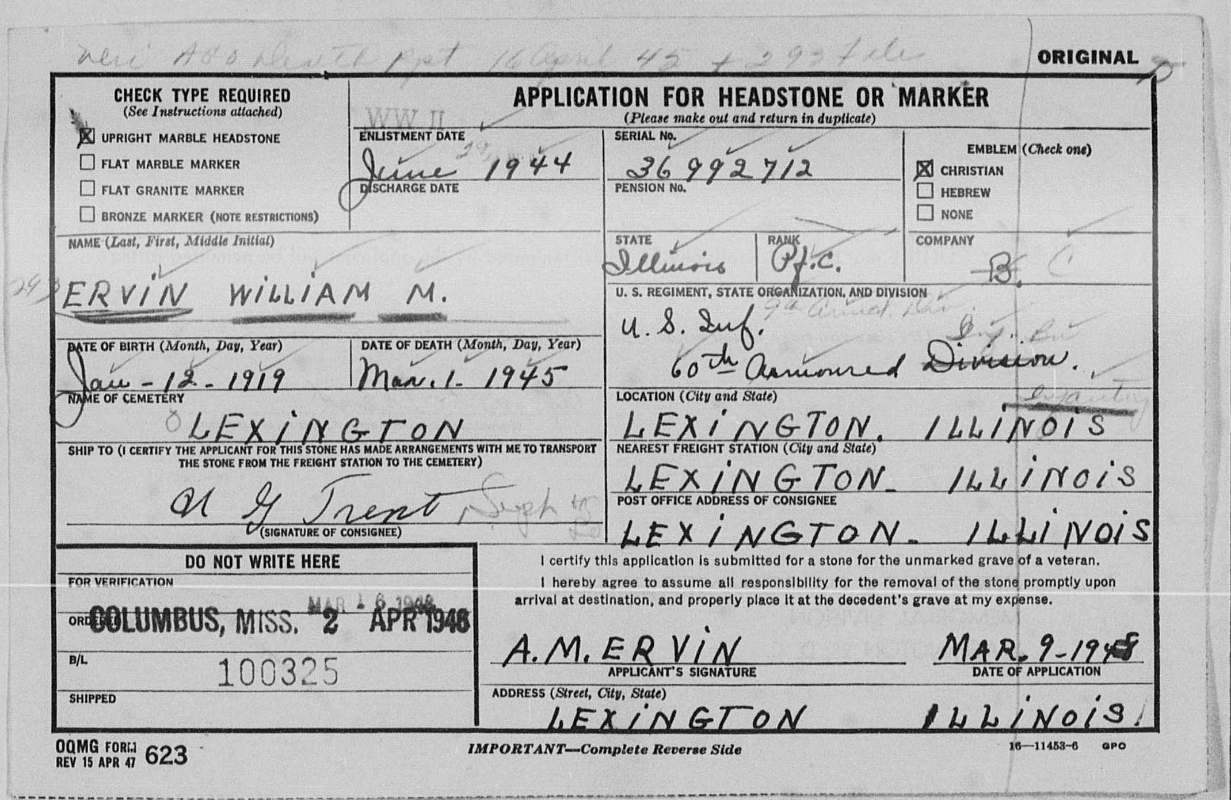 Veri AGO Death Rpt 16 April 45 + 293 file
ORIGINAL
CHECK TYPE REQUIRED
(See Instructions attached)
X UPRIGHT MARBLE HEADSTONE
FLAT MARBLE MARKER
FLAT GRANITE MARKER
BRONZE MARKER (NOTE RESTRICTIONS)
APPLICATION FOR HEADSTONE OR MARKER
(Please make out and return in duplicate)
WW II
ENLISTMENT DATE
June 1944
DISCHARGE DATE
SERIAL No.
36 992 712
PENSION No.
EMBLEM (Check one)
X CHRISTIAN
HEBREW
NONE
NAME (Last, First, Middle Initial)
293 ERVIN WILLIAM M.
STATE
Illinois
RANK
Pfc.
COMPANY
B. C
U. S. REGIMENT, STATE ORGANIZATION, AND DIVISION
9th Armd. Div
U. S. Inf. Inf. Bn
60th Armoured Division.
Infantry
DATE OF BIRTH (Month, Day, Year)
Jan - 12 - 1919
DATE OF DEATH (Month, Day, Year)
Mar. 1. 1945
NAME OF CEMETERY
LEXINGTON
LOCATION (City and State)
LEXINGTON. ILLINOIS
SHIP TO (I CERTIFY THE APPLICANT FOR THIS STONE HAS MADE ARRANGEMENTS WITH ME TO TRANSPORT
THE STONE FROM THE FREIGHT STATION TO THE CEMETERY)
NEAREST FREIGHT STATION (City and State)
LEXINGTON- ILLINOIS
POST OFFICE ADDRESS OF CONSIGNEE
LEXINGTON- ILLINOIS
U G Trent
(SIGNATURE OF CONSIGNEE)
DO NOT WRITE HERE
FOR VERIFICATION
MAR 16 1948
ORDERED
COLUMBUS, MISS. 2 APR 1948
B/L
100325
SHIPPED
I certify this application is submitted for a stone for the unmarked grave of a veteran.
I hereby agree to assume all responsibility for the removal of the stone promptly upon
arrival at destination, and properly place it at the decedent's grave at my expense.
A. M. ERVIN
APPLICANT'S SIGNATURE
MAR. 9-1948
DATE OF APPLICATION
ADDRESS (Street, City, State)
LEXINGTON ILLINOIS.
OQMG FORM
REV 15 APR 47 623
IMPORTANT—Complete Reverse Side
16—11453-6 GPO